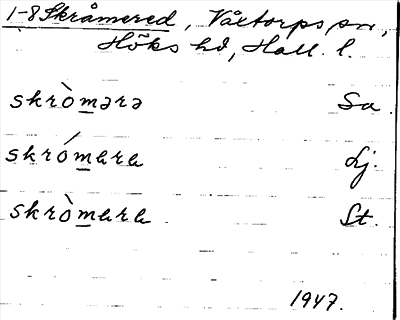 1-8 Skråmered, Våxtorps sn,
Höks hd, Hall. l.
skròmərə Sa.
skrómara Lj.
skròmara St.
1947.